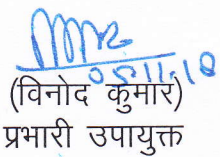 05.11.18
(विनोद कुमार)
प्रभारी उपायुक्त